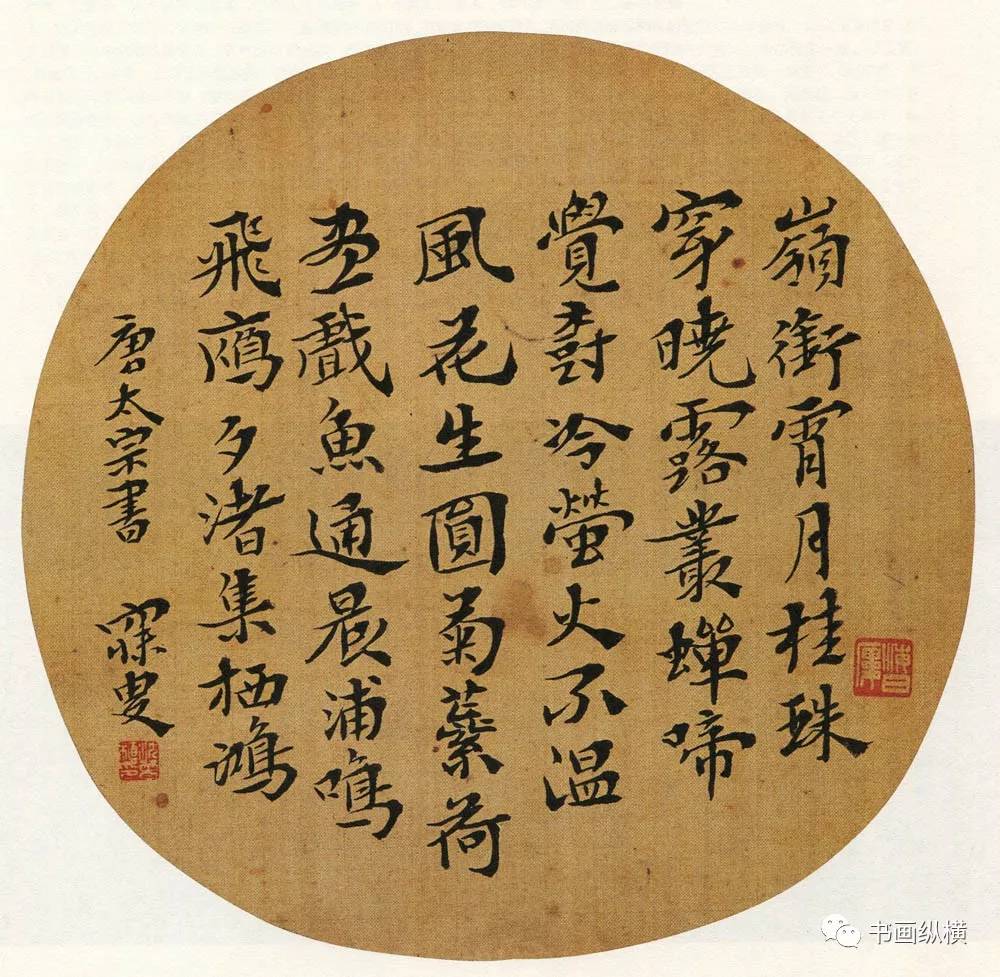 嶺銜霄月桂珠
穿曉露叢蟬啼
覺樹冷螢火不溫
風花生圓菊蘂荷
盡戲魚通晨浦鳴
飛鴈夕渚集栖鴻
唐太宗書 寐叟
书画纵横